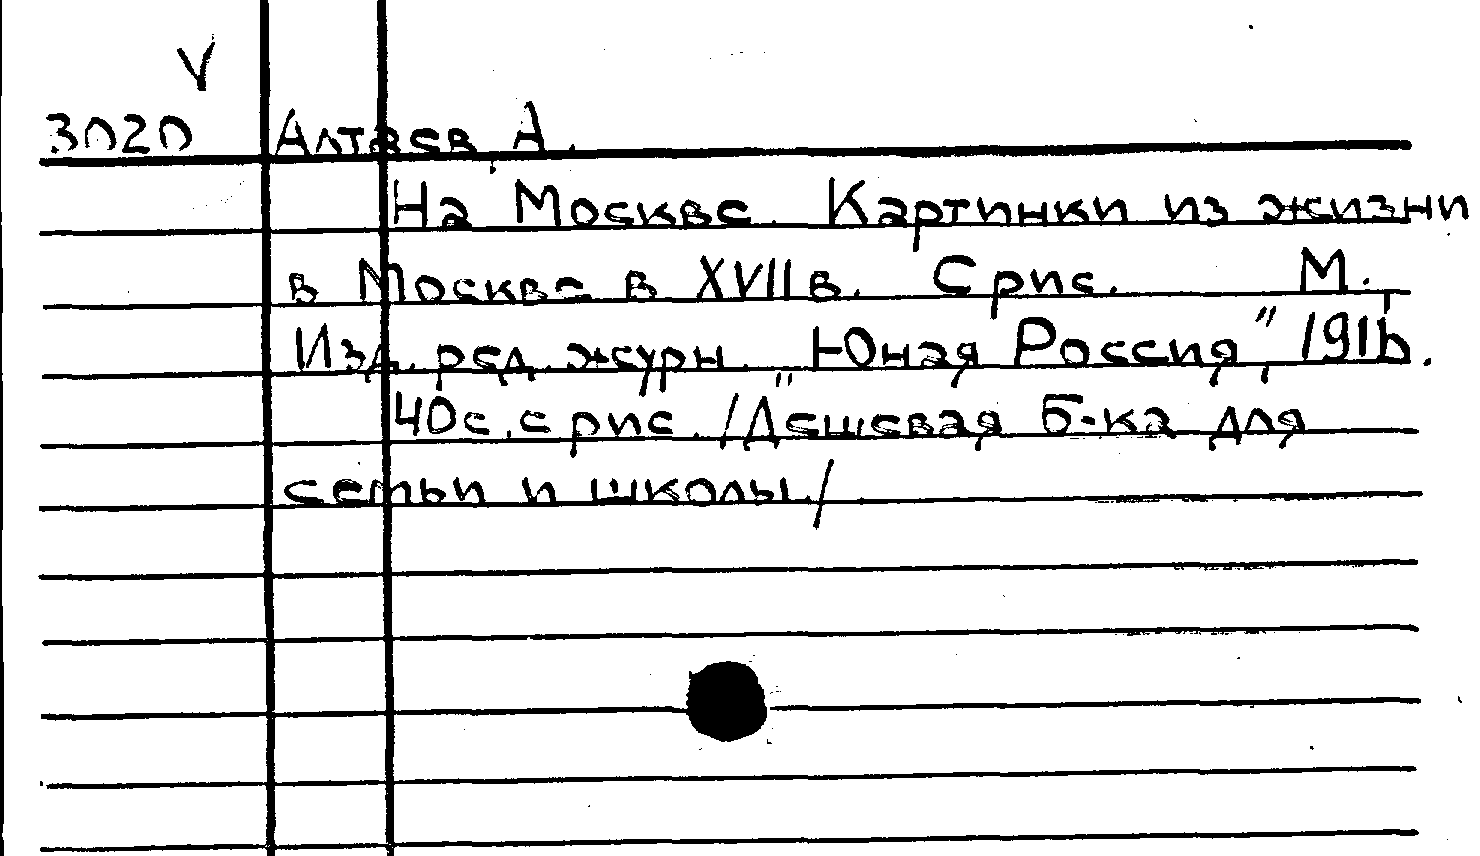 V
3020 Алтаев, А.
На Москве. Картинки из жизни
в Москве в XVII в. С рис. М.,
Изд. ред. журн. „Юная Россия", 1916.
40с. с рис. /Дешевая б-ка для
семьи и школы./